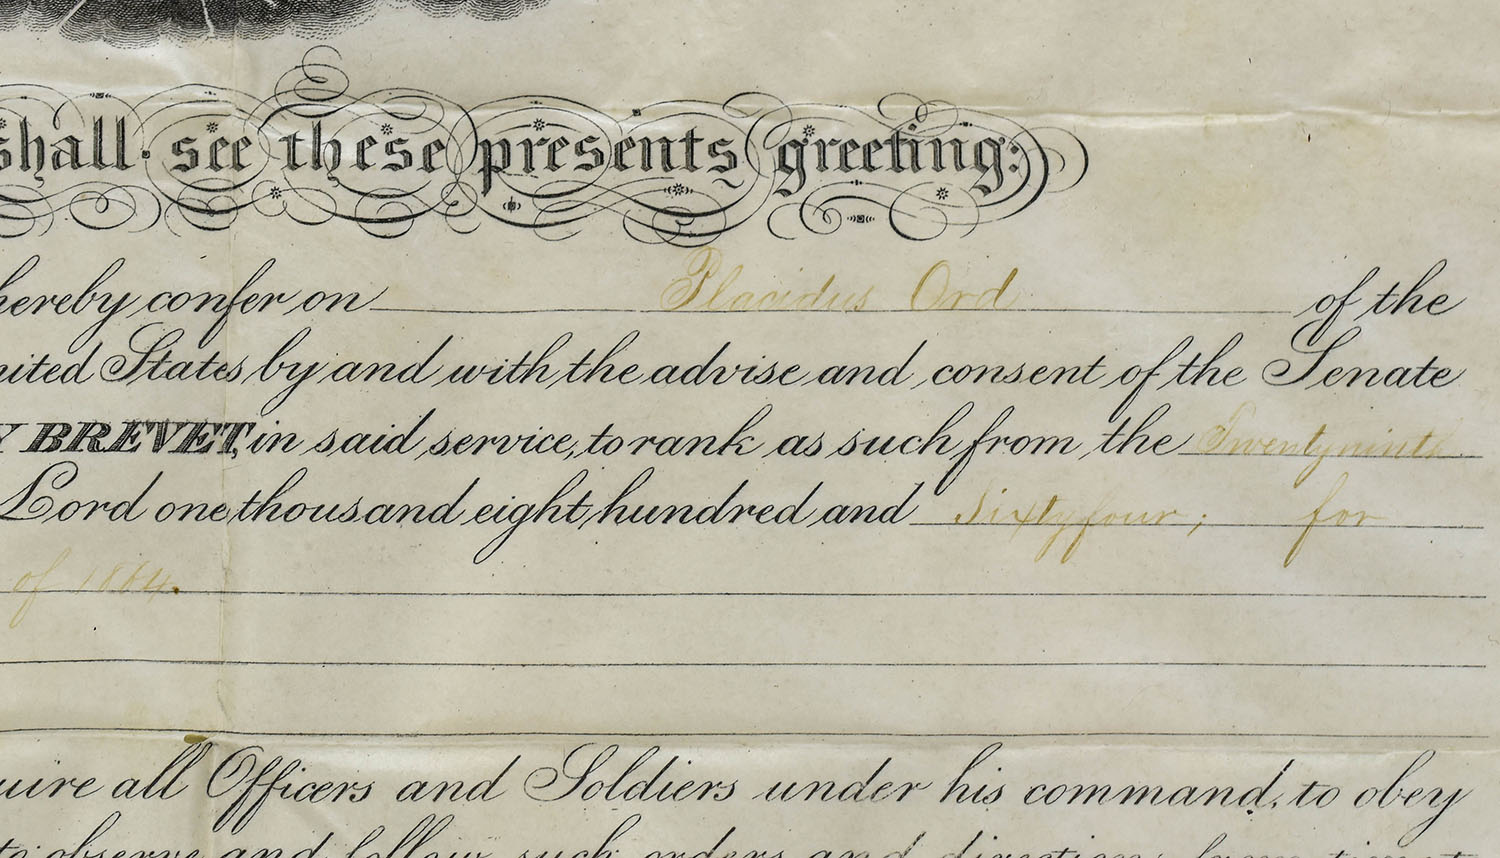 shall see these presents greeting:
hereby confer on Placidus Ord of the
nited States by and with the advise and consent of the Senate
Y BREVET, in said service, to rank as such from the Twentyninth
Lord one thousand eight hundred and Sixtyfour; for
of 1864.
uire all Officers and Soldiers under his command, to obey
to observe and follow such orders and directions from time to